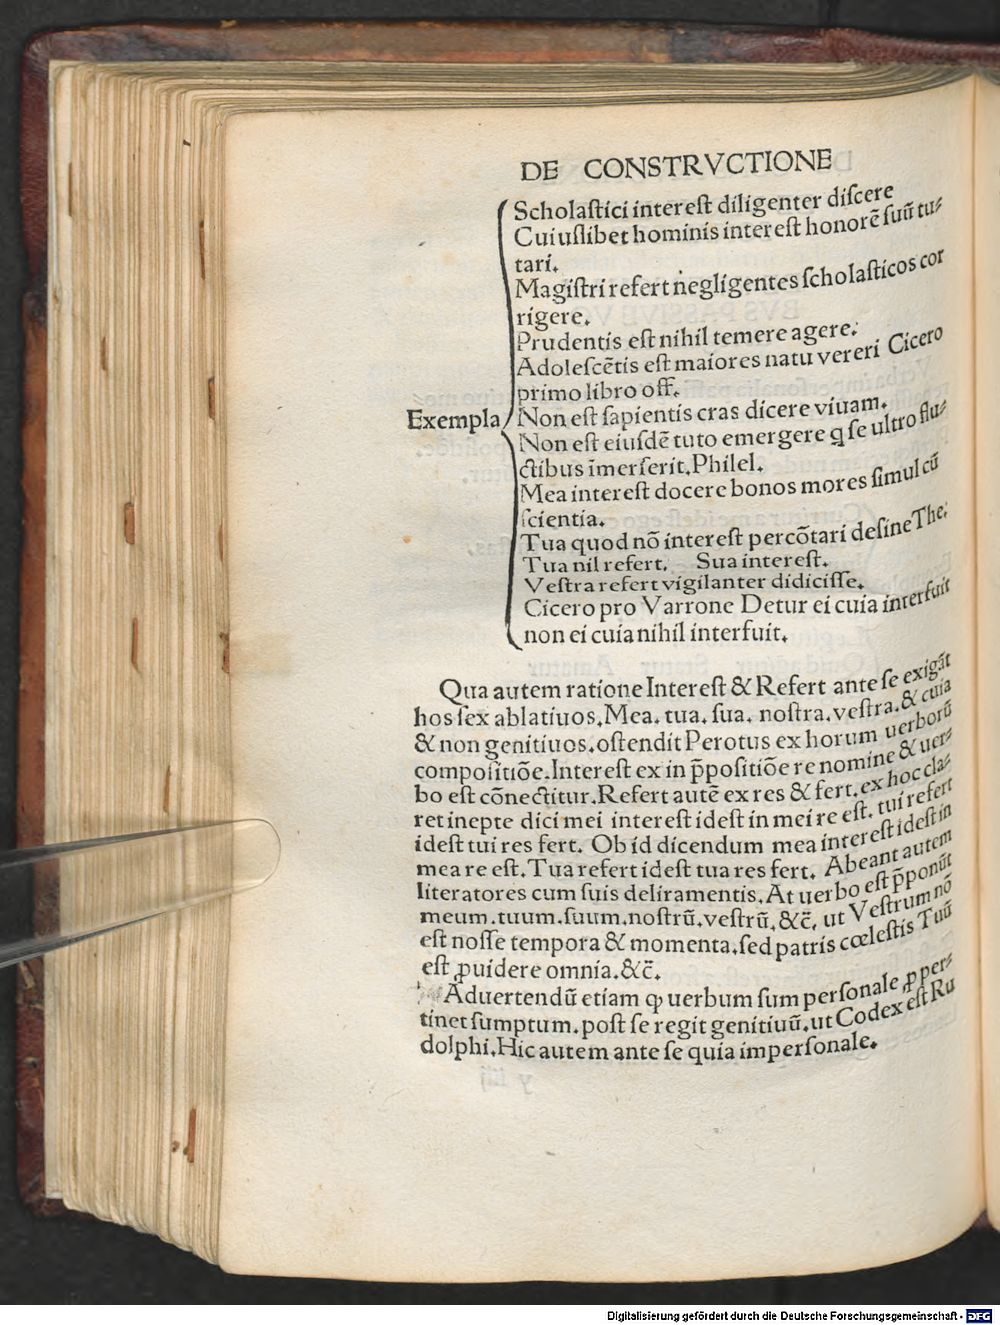 DE CONSTRVCTIONE
Scholaſtici intereſt diligenter diſcere
Cuiuſlibet hominis intereſt honorẽ ſuũ tu⸗
tari.
Magiſtri refert negligentes ſcholaſticos cor
rigere.
Prudentis eſt nihil temere agere.
Adoleſcẽtis eſt maiores natu vereri Cicero
primo libro off.
Exempla
Non eſt ſapientis cras dicere viuam.
Non eſt eiuſdẽ tuto emergere q ſe ultro flu⸗
ctibus ĩmerſerit. Philel.
Mea intereſt docere bonos mores ſimul cũ
ſcientia.
Tua quod nõ intereſt percõtari deſine The.
Tua nil refert. Sua intereſt.
Veſtra refert vigilanter didiciſſe.
Cicero pro Varrone Detur ei cuia interfuit
non ei cuia nihil interfuit.
Qua autem ratione Intereſt & Refert ante ſe exigãt
hos ſex ablatiuos. Mea. tua. ſua. noſtra. veſtra. & cuia
& non genitiuos. oſtendit Perotus ex horum uerborũ
compoſitiõe. Intereſt ex in p̃poſitiõe re nomine & uer⸗
bo est cõnectitur. Refert autẽ ex res & fert. ex hoc cla⸗
ret inepte dici mei intereſt ideſt in mei re eſt. tui refert
ideſt tui res fert. Ob id dicendum mea intereſt ideſt in
mea re eſt. Tua refert ideſt tua res fert. Abeant autem
literatores cum ſuis deliramentis. At uerbo eſt p̃ponũt
meum. tuum. ſuum. noſtrũ. veſtrũ. &c̃. ut Veſtrum nõ
eſt noſſe tempora & momenta. ſed patris cœleſtis Tuũ
eſt ꝓuidere omnia. &c̃.
Aduertendũ etiam ꝙ uerbum ſum perſonale ꝓ per⸗
tinet ſumptum. poſt ſe regit genitiuũ. ut Codex eſt Ru
dolphi. Hic autem ante ſe quia imperſonale.
Digitalisierung gefördert durch die Deutsche Forschungsgemeinschaft - DFG